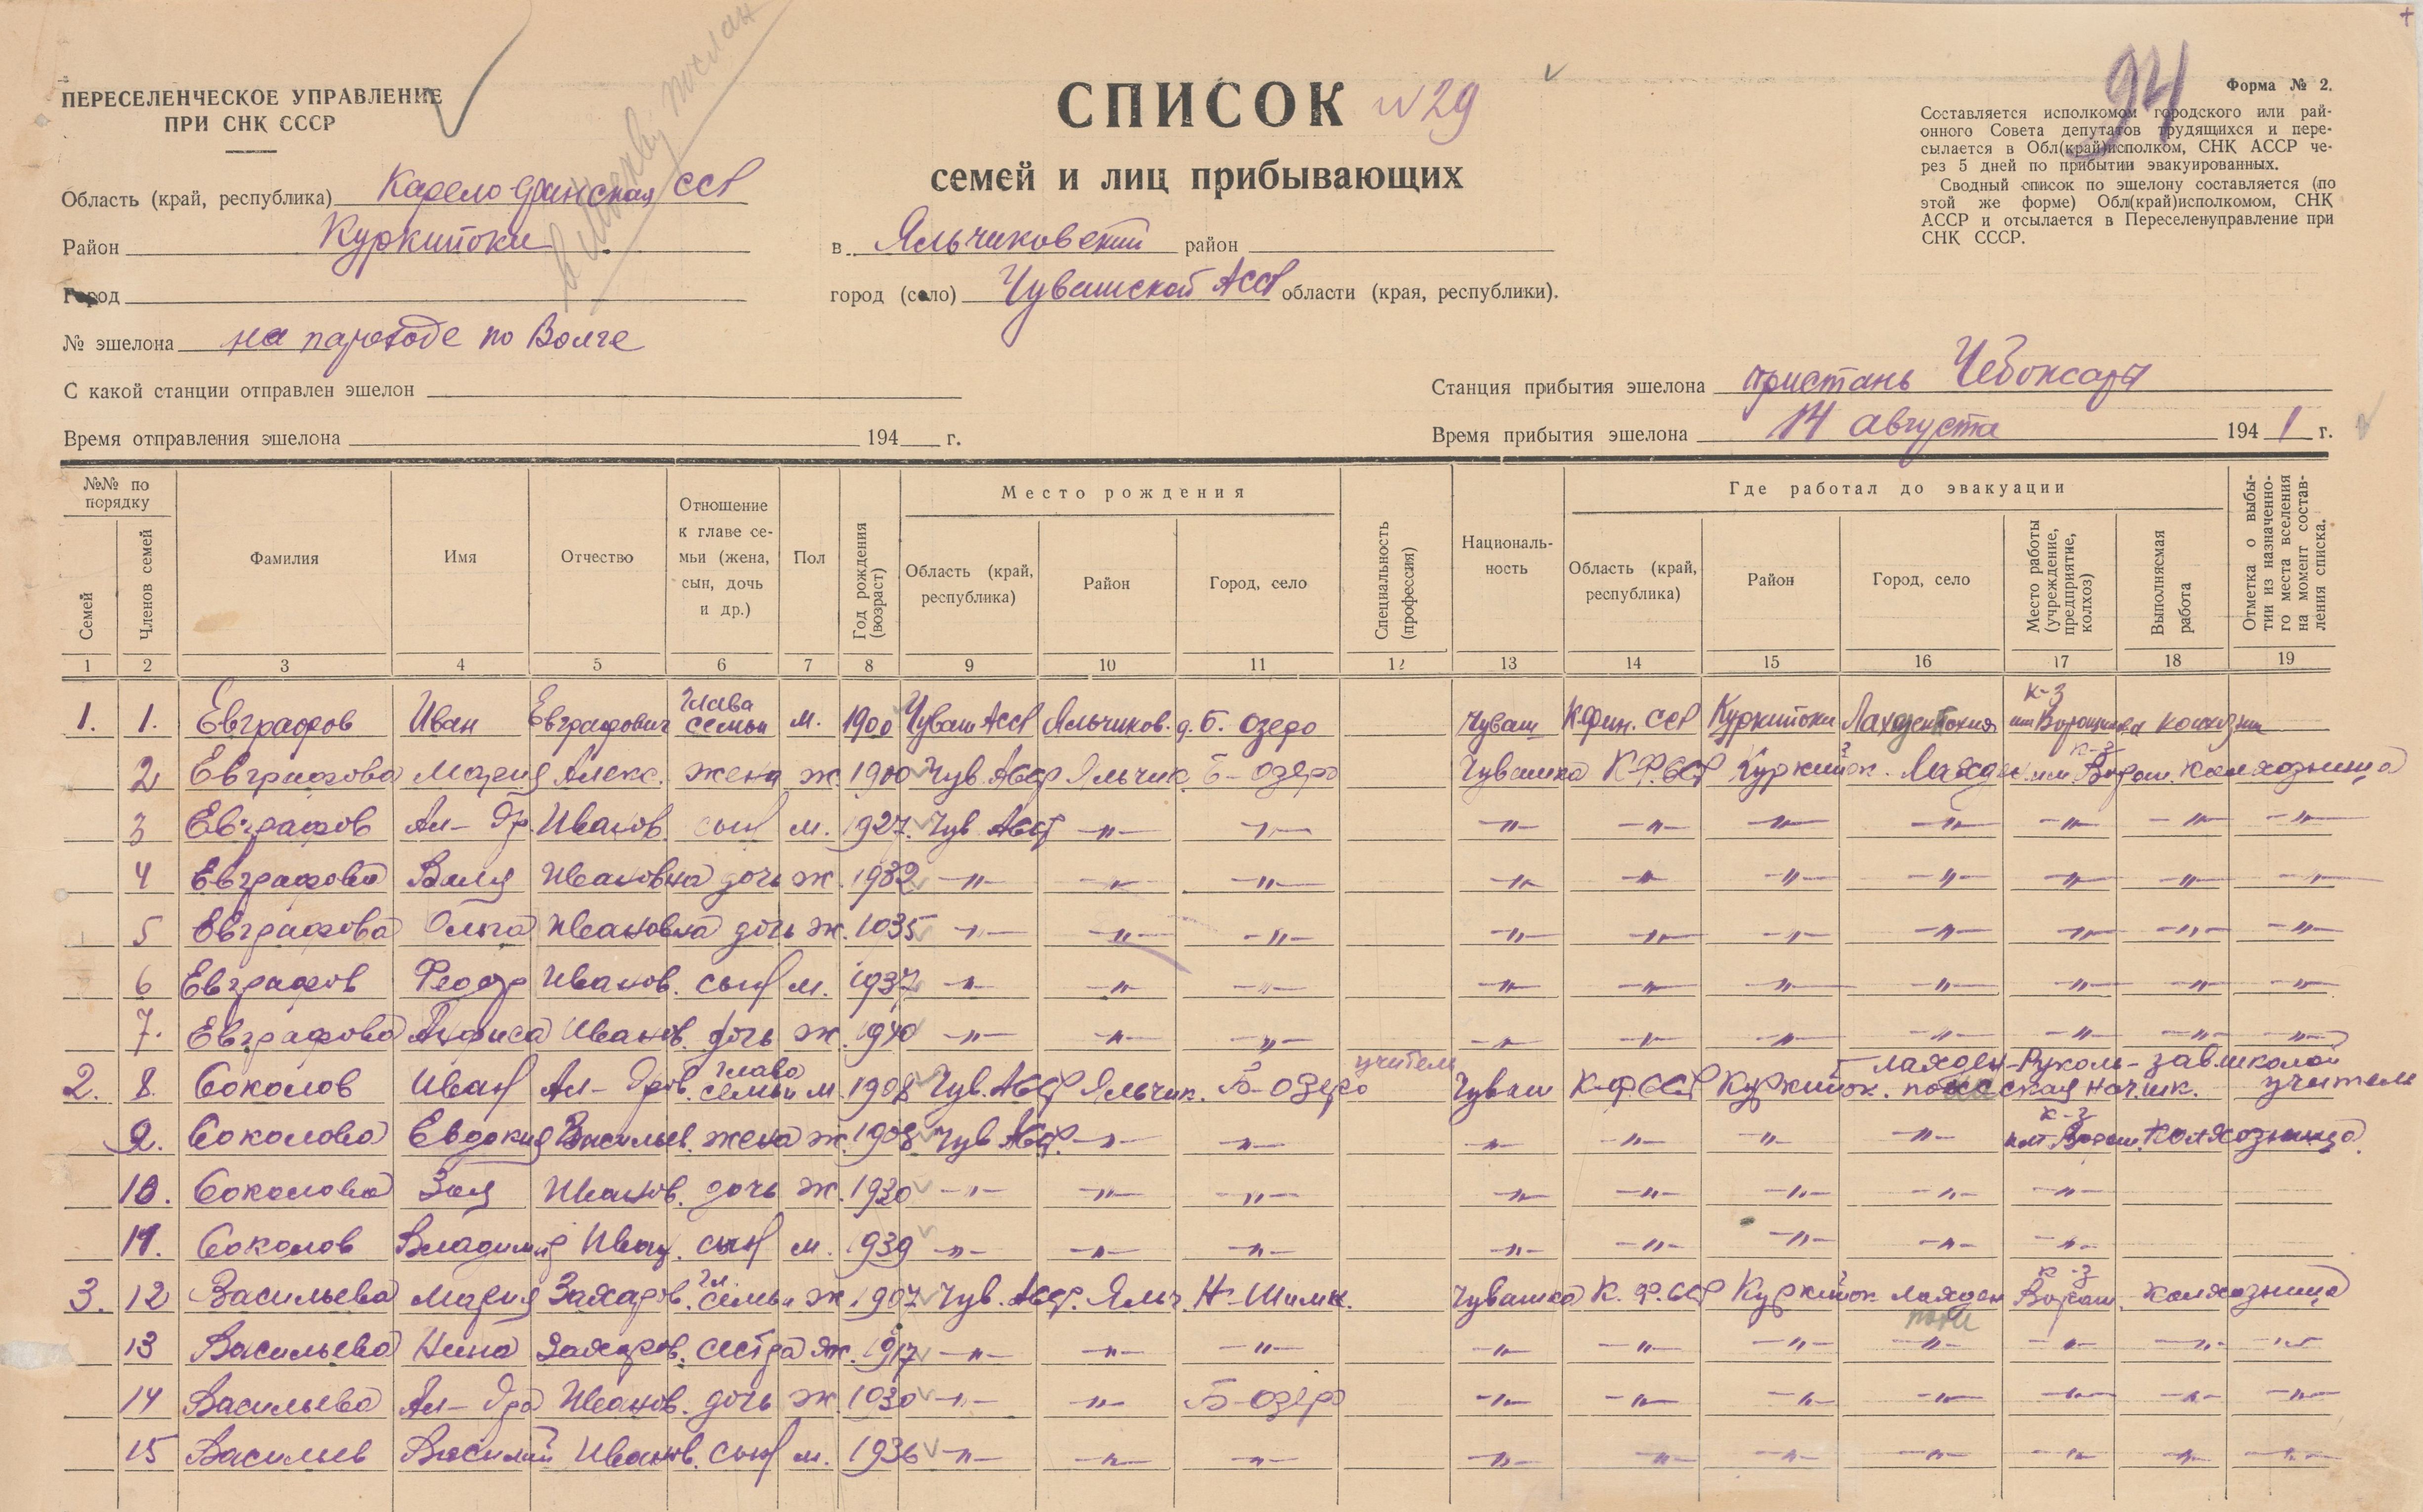 ПЕРЕСЕЛЕНЧЕСКОЕ УПРАВЛЕНИЕ
ПРИ СНК СССР
в Москву послан
СПИСОК № 29
семей и лиц прибывающих
94
Форма № 2.
Составляется исполкомом городского или рай-
онного Совета депутатов трудящихся и пере-
сылается в Обл(край)исполком, СНК АССР че-
рез 5 дней по прибытии эвакуированных.
Сводный список по эшелону составляется (по
этой же форме) Обл(край)исполкомом, СНК
АССР и отсылается в Переселенуправление при
СНК СССР.
Область (край, республика) Карело Финская ССР
Район Куркийоки
Город
№ эшелона на пароходе по Волге
С какой станции отправлен эшелон
Время отправления эшелона 194 г.
в Яльчиковский район
город (село) Чувашской АССР области (края, республики).
Станция прибытия эшелона пристань Чебоксары
Время прибытия эшелона 14 августа 1941 г.
№№ по порядку
Семей
Членов семей
Фамилия
Имя
Отчество
Отношение к главе се-мьи (жена, сын, дочь и др.)
Пол
Год рождения (возраст)
Место рождения
Область (край, республика)
Район
Город, село
Специальность (профессия)
Националь-ность
Где работал до эвакуации
Область (край, республика)
Район
Город, село
Место работы (учреждение, предприятие, колхоз)
Выполняемая работа
Отметка о выбы-тии из назначенно-го места вселения на момент состав-ления списка.
1 2 3 4 5 6 7 8 9 10 11 12 13 14 15 16 17 18 19
1. 1. Евграфов Иван Евграфович глава семьи м. 1900 Чуваш АССР Яльчиков. д. Б. Озеро Чуваш К.фин. ССР Куркийоки Лахденпохия к-з им Ворошилова колхозник
2 Евграфова Мария Алекс. жена ж. 1900 Чув. АССР Яльчик Б-Озеро Чувашка К.Ф.ССР Куркийок. Лахден. к-з им. Ворош. колхозница
3 Евграфов Ал-др. Иванов. сын м. 1927. Чув АССР -"- -"- -"- -"- -"- -"- -"- -"- -"-
4 Евграфова Валя Ивановна дочь ж. 1932 -"- -"- -"- -"- -"- -"- -"- -"- -"- -"-
5 Евграфова Ольга Ивановна дочь ж. 1935 -"- -"- -"- -"- -"- -"- -"- -"- -"- -"-
6 Евграфов Феодр Иванов. сын м. 1937 -"- -"- -"- -"- -"- -"- -"- -"- -"- -"-
7. Евграфова Анфиса Иванов. дочь ж. 1940 -"- -"- -"- -"- -"- -"- -"- -"- -"- -"-
2. 8. Соколов Иван Ал-дров. глава семьи м 1908 Чув. АССР Яльчик. Б-Озеро учитель Чуваш К.Ф.ССР Куркийок. Лахден- ская нач.шк. зав.школой учитель
9. Соколова Евдокия Васильев. жена ж. 1908 Чув АССР. -"- -"- -"- -"- -"- -"- к-з им. Ворош. колхозница
10. Соколова Зоя Иванов. дочь ж. 1930 -"- -"- -"- -"- -"- -"- -"- -"-
11. Соколов Владимир Иван. сын м. 1939 -"- -"- -"- -"- -"- -"- -"- -"-
3. 12 Васильева Мария Захаров. гл. семьи ж. 1907 Чув. АССР. Яльч. Н-Шимк. Чувашка К.Ф.ССР Куркийок Лахден похи к-з Ворош. колхозница
13 Васильева Нина Захаров. сестра ж. 1917 -"- -"- -"- -"- -"- -"- -"- -"- -"- -"-
14 Васильева Ал-дра Иванов. дочь ж. 1930 -"- -"- Б-Озеро -"- -"- -"- -"- -"- -"- -"-
15 Васильев Василий Иванов. сын м. 1936 -"- -"- -"- -"- -"- -"- -"- -"- -"- -"-